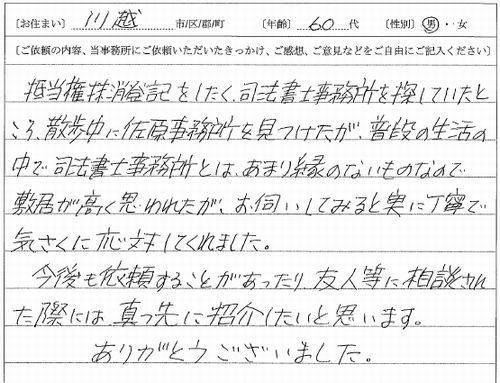 〔お住まい〕 川越 市/区/郡/町 〔年齢〕 60 代 〔性別〕 男・女
〔ご依頼の内容、当事務所にご依頼いただいたきっかけ、ご感想、ご意見などをご自由にご記入ください〕
抵当権抹消登記をしたく、司法書士事務所を探していたと
ころ、散歩中に佐原事務所を見つけたが、普段の生活の
中で司法書士事務所とは、あまり縁のないものなので
敷居が高く思われたが、お伺いしてみると実に丁寧で
気さくに応対してくれました。
今後も依頼することがあったり、友人等に相談され
た際には、真っ先に紹介したいと思います。
ありがとうございました。